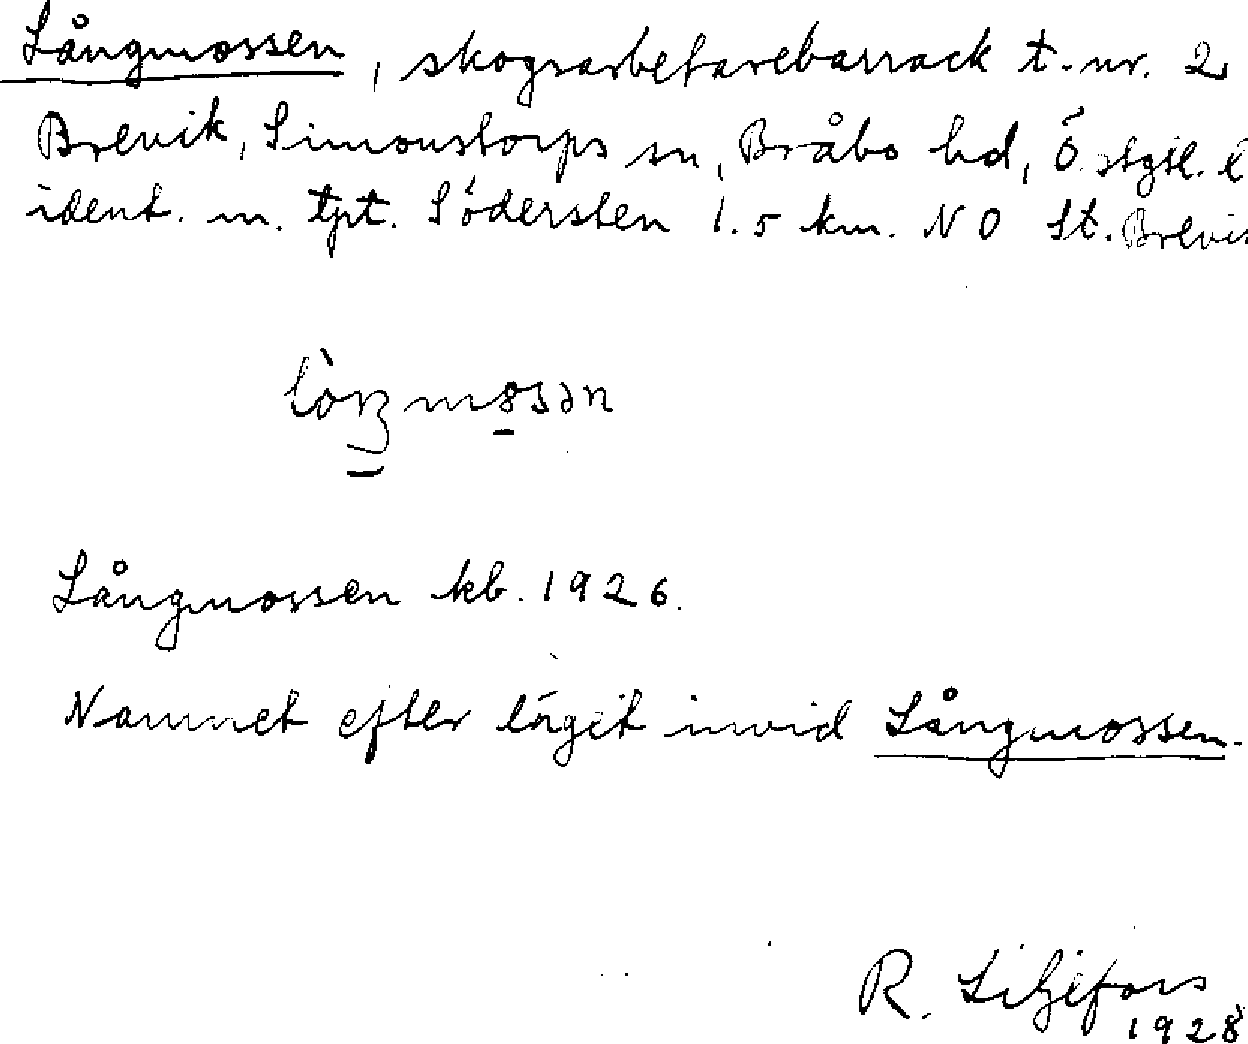 Långmossen, skogsarbetarebarrack t. nr. 2
Brevik, Simonstorps sn, Bråbo hd, Östgtl. l
ident. m. tpt. Södersten 1.5 km. NO St. Brevi
Långmossen kb. 1926.
Namnet efter läget invid Långmossen.
R. Liljefors
1928